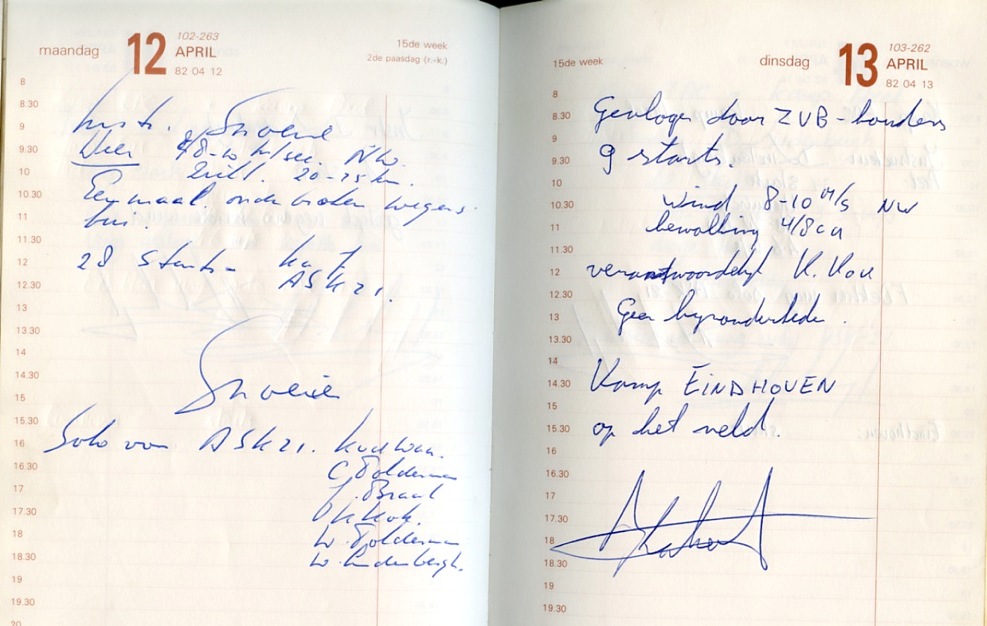 maandag 12 APRIL
102-263
82 04 12
15de week
2de paasdag (r.-k.)
8
8.30
9
9.30
10
10.30
11
11.30
12
12.30
13
13.30
14
14.30
15
15.30
16
16.30
17
17.30
18
18.30
19
19.30
20
Instr.
Weer 8-10 m/sec. NW.
20-25 km.
Eenmaal onderbroken wegens
bui.
28 starts
ASK 21.
Solo van ASK 21.
C. Polderman
J. Braat
K. Kok.
W. Polderman
W.
15de week
dinsdag 13 APRIL
103-262
82 04 13
8
8.30
9
9.30
10
10.30
11
11.30
12
12.30
13
13.30
14
14.30
15
15.30
16
16.30
17
17.30
18
18.30
19
19.30
Gevlogen door ZVB-houders
9 starts.
wind 8-10 M/s NW
bewolking 4/8 cu
verantwoordelijk K. Kok
Geen bijzonderheden.
Kamp EINDHOVEN
op het veld.